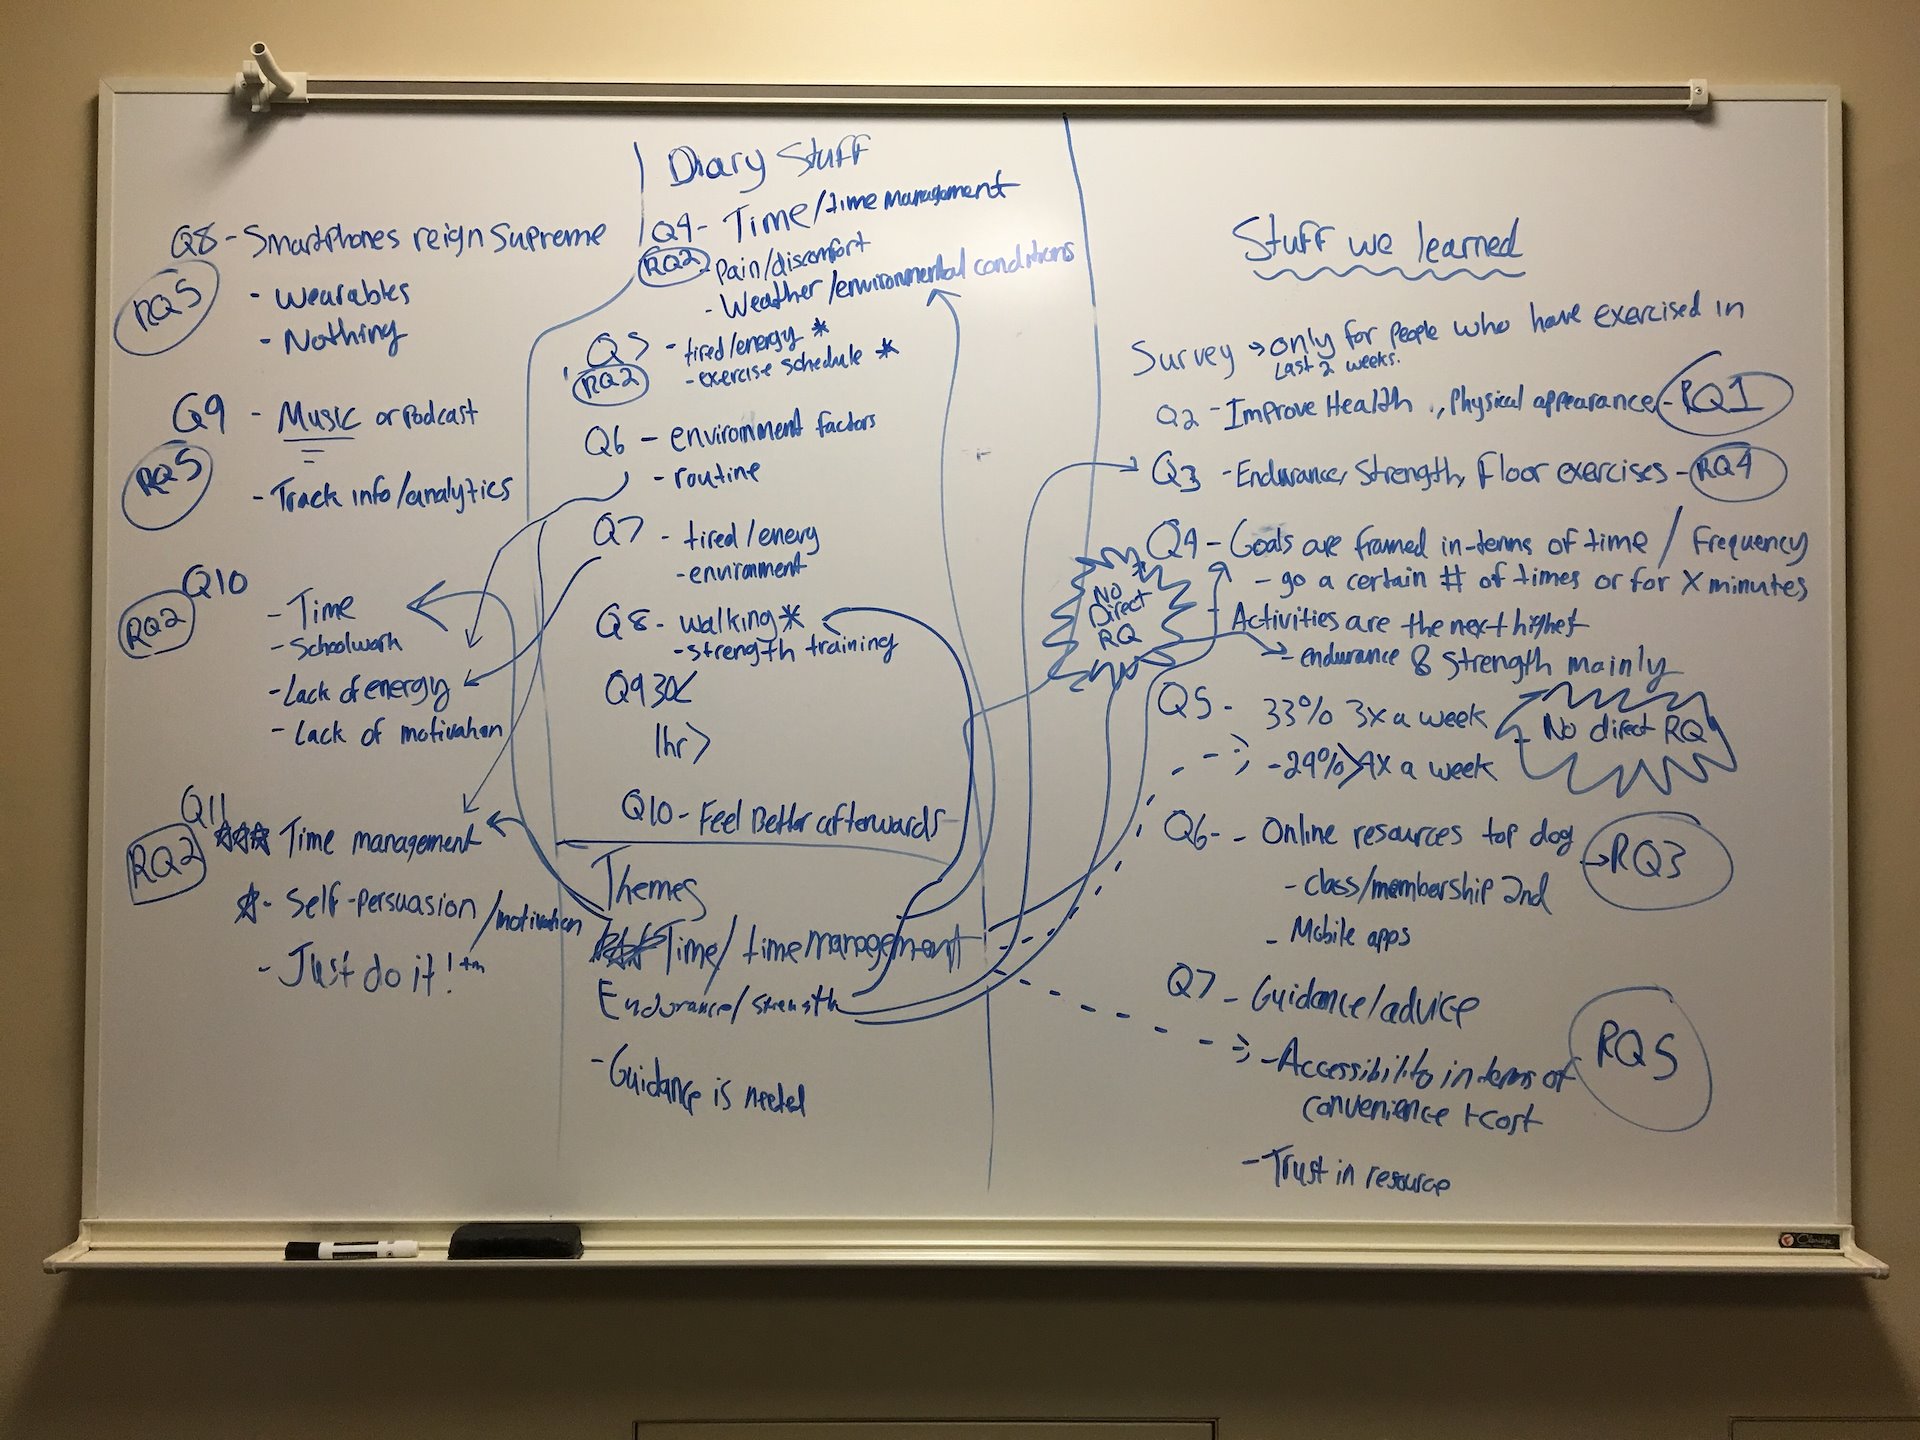 Q8 - Smartphones reign supreme
RQ5
- Wearables
- Nothing
Q9 - Music or Podcast
RQ5
- Track info/analytics
Q10
RQ2
- Time
- Schoolwork
- Lack of energy
- Lack of motivation
Q11
RQ2
Time management
- Self-persuasion/motivation
- Just do it! tm
Diary Stuff
Q4 - Time/time management
RQ2
- Pain/discomfort
- Weather/environmental conditions
Q5 - tired/energy *
RQ2
- exercise schedule *
Q6 - environment factors
- routine
Q7 - tired/energy
- environment
Q8 - walking *
- strength training
Q9 30<
1hr >
Q10 - Feel Better afterwards
Themes
Time/time management
Endurance/strength
- Guidance is needed
Stuff we learned
Survey → only for people who have exercised in
Last 2 weeks.
Q2 - Improve Health, Physical appearance - RQ1
Q3 - Endurance, Strength, Floor exercises - RQ4
Q4 - Goals are framed in-terms of time / Frequency
- go a certain # of times or for X minutes
No
Direct
RQ
- Activities are the next highest
- endurance & strength mainly
Q5 - 33% 3x a week
- No direct RQ
- 29% > 4x a week
Q6 - - Online resources top dog → RQ3
- class/membership 2nd
- Mobile apps
Q7 - Guidance/advice
RQ5
- Accessibility in terms of
convenience + cost
- Trust in resource
Claridge